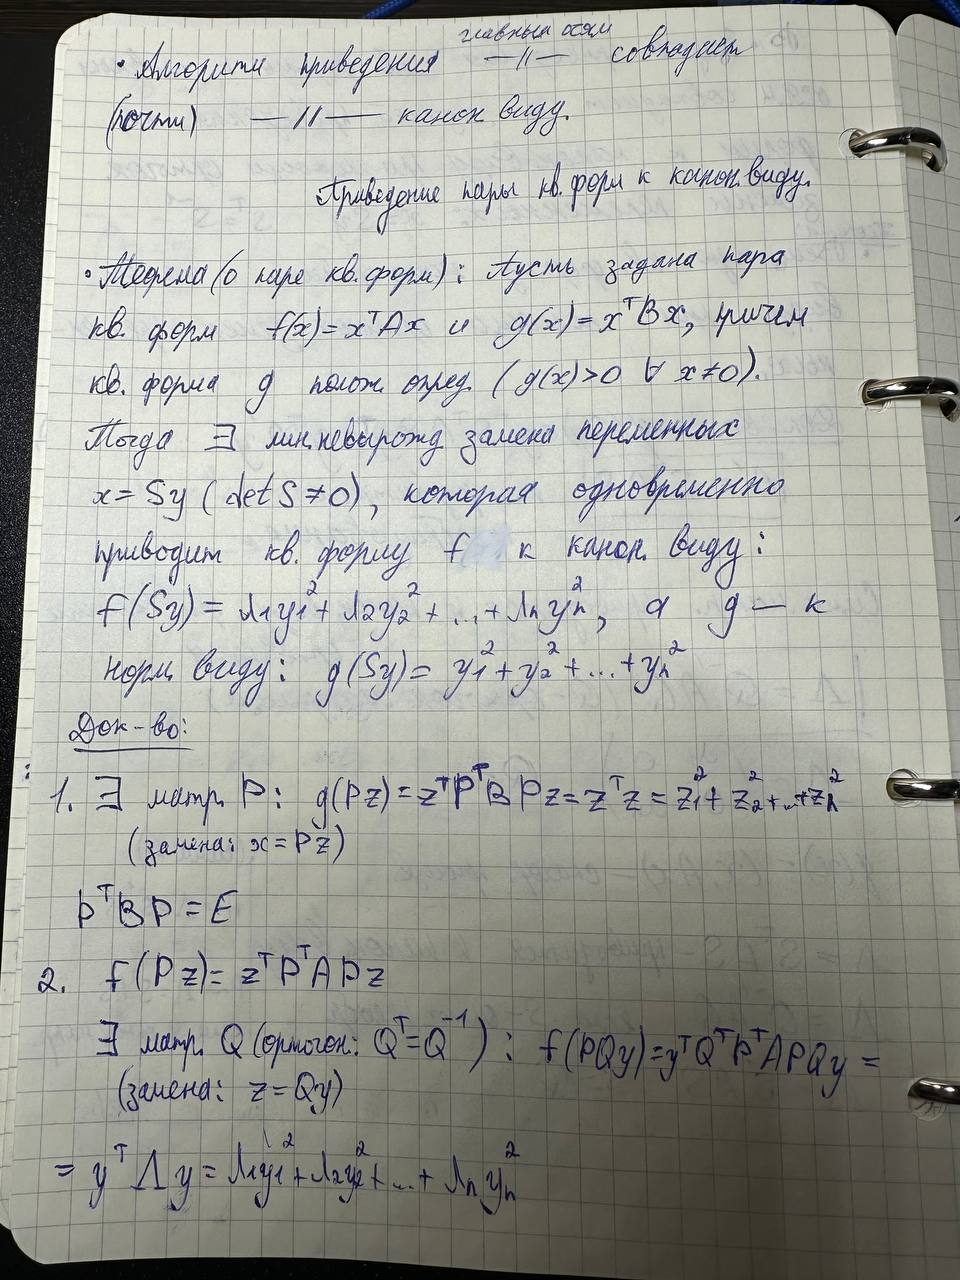 главным осям
• Алгоритм приведения —//— совпадает
(почти) —//— канон виду.
Приведение пары кв. форм к канон. виду.
• Теорема (о паре кв. форм): Пусть задана пара
кв. форм f(x) = xᵀAx и g(x) = xᵀBx, причем
кв. форма g полож. опред. (g(x)>0 ∀ x≠0).
Тогда ∃ лин. невырожд замена переменных
x = Sy (det S ≠ 0), которая одновременно
приводит кв. форму f к канон. виду:
f(Sy) = λ₁y₁² + λ₂y₂² + ... + λₙyₙ², а g — к
норм. виду: g(Sy) = y₁² + y₂² + ... + yₙ²
Док-во:
1. ∃ матр. P: g(Pz) = zᵀPᵀBPz = zᵀz = z₁² + z₂² + ... + zₙ²
(замена: x = Pz)
PᵀBP = E
2. f(Pz) = zᵀPᵀAPz
∃ матр. Q (ортогон: Qᵀ = Q⁻¹): f(PQy) = yᵀQᵀPᵀAPQy =
(замена: z = Qy)
= yᵀΛy = λ₁y₁² + λ₂y₂² + ... + λₙyₙ²